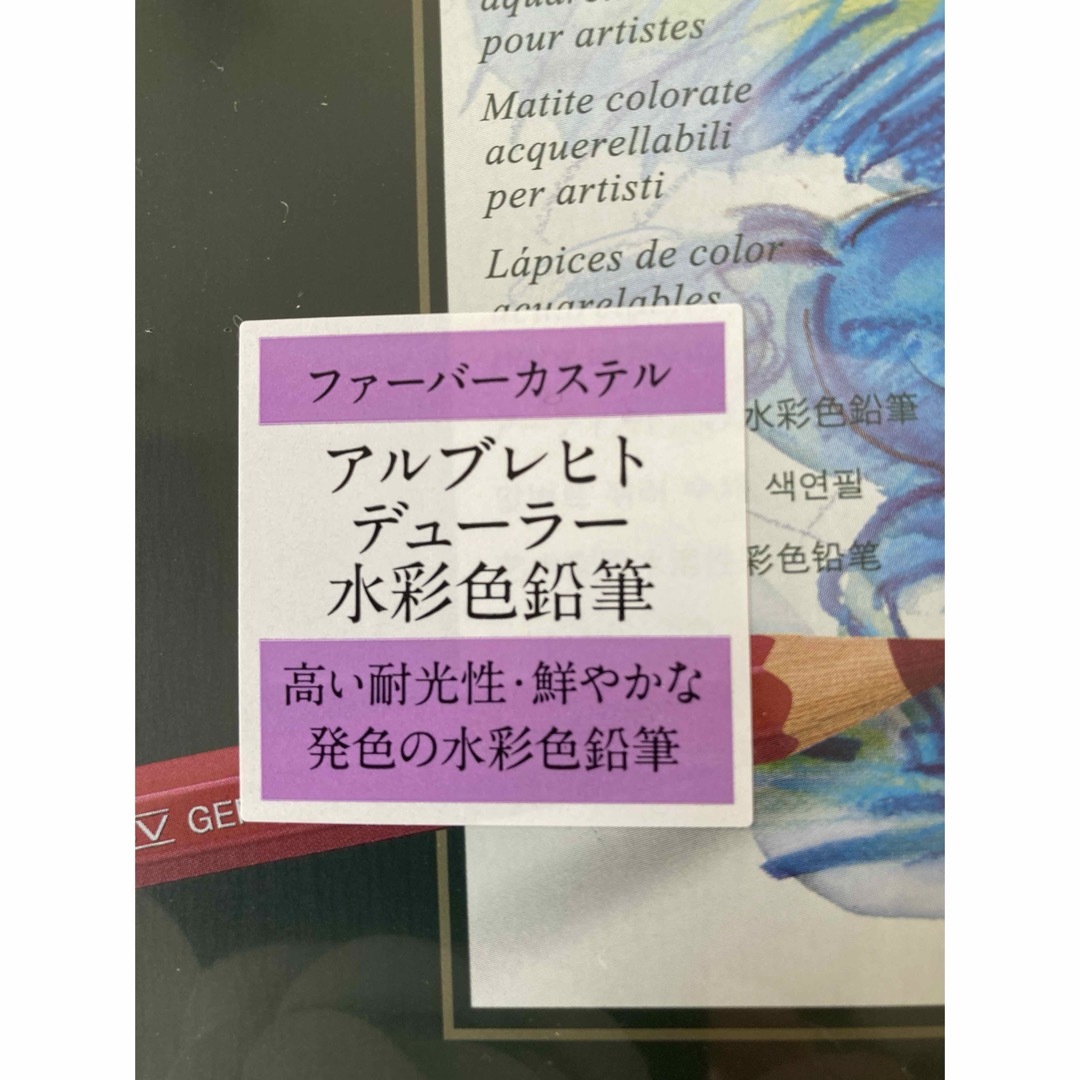 pour artistes
Matite colorate
acquerellabili
per artisti
Lápices de color
acuarelables
ファーバーカステル
アルブレヒト
デューラー
水彩色鉛筆
高い耐光性・鮮やかな
発色の水彩色鉛筆
水彩色鉛筆
색연필
彩色铅笔